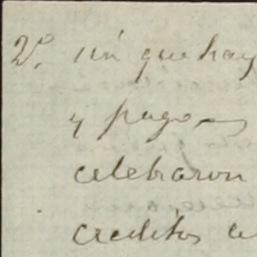 2º. sin que hay
y pago
celebraron
creditos a